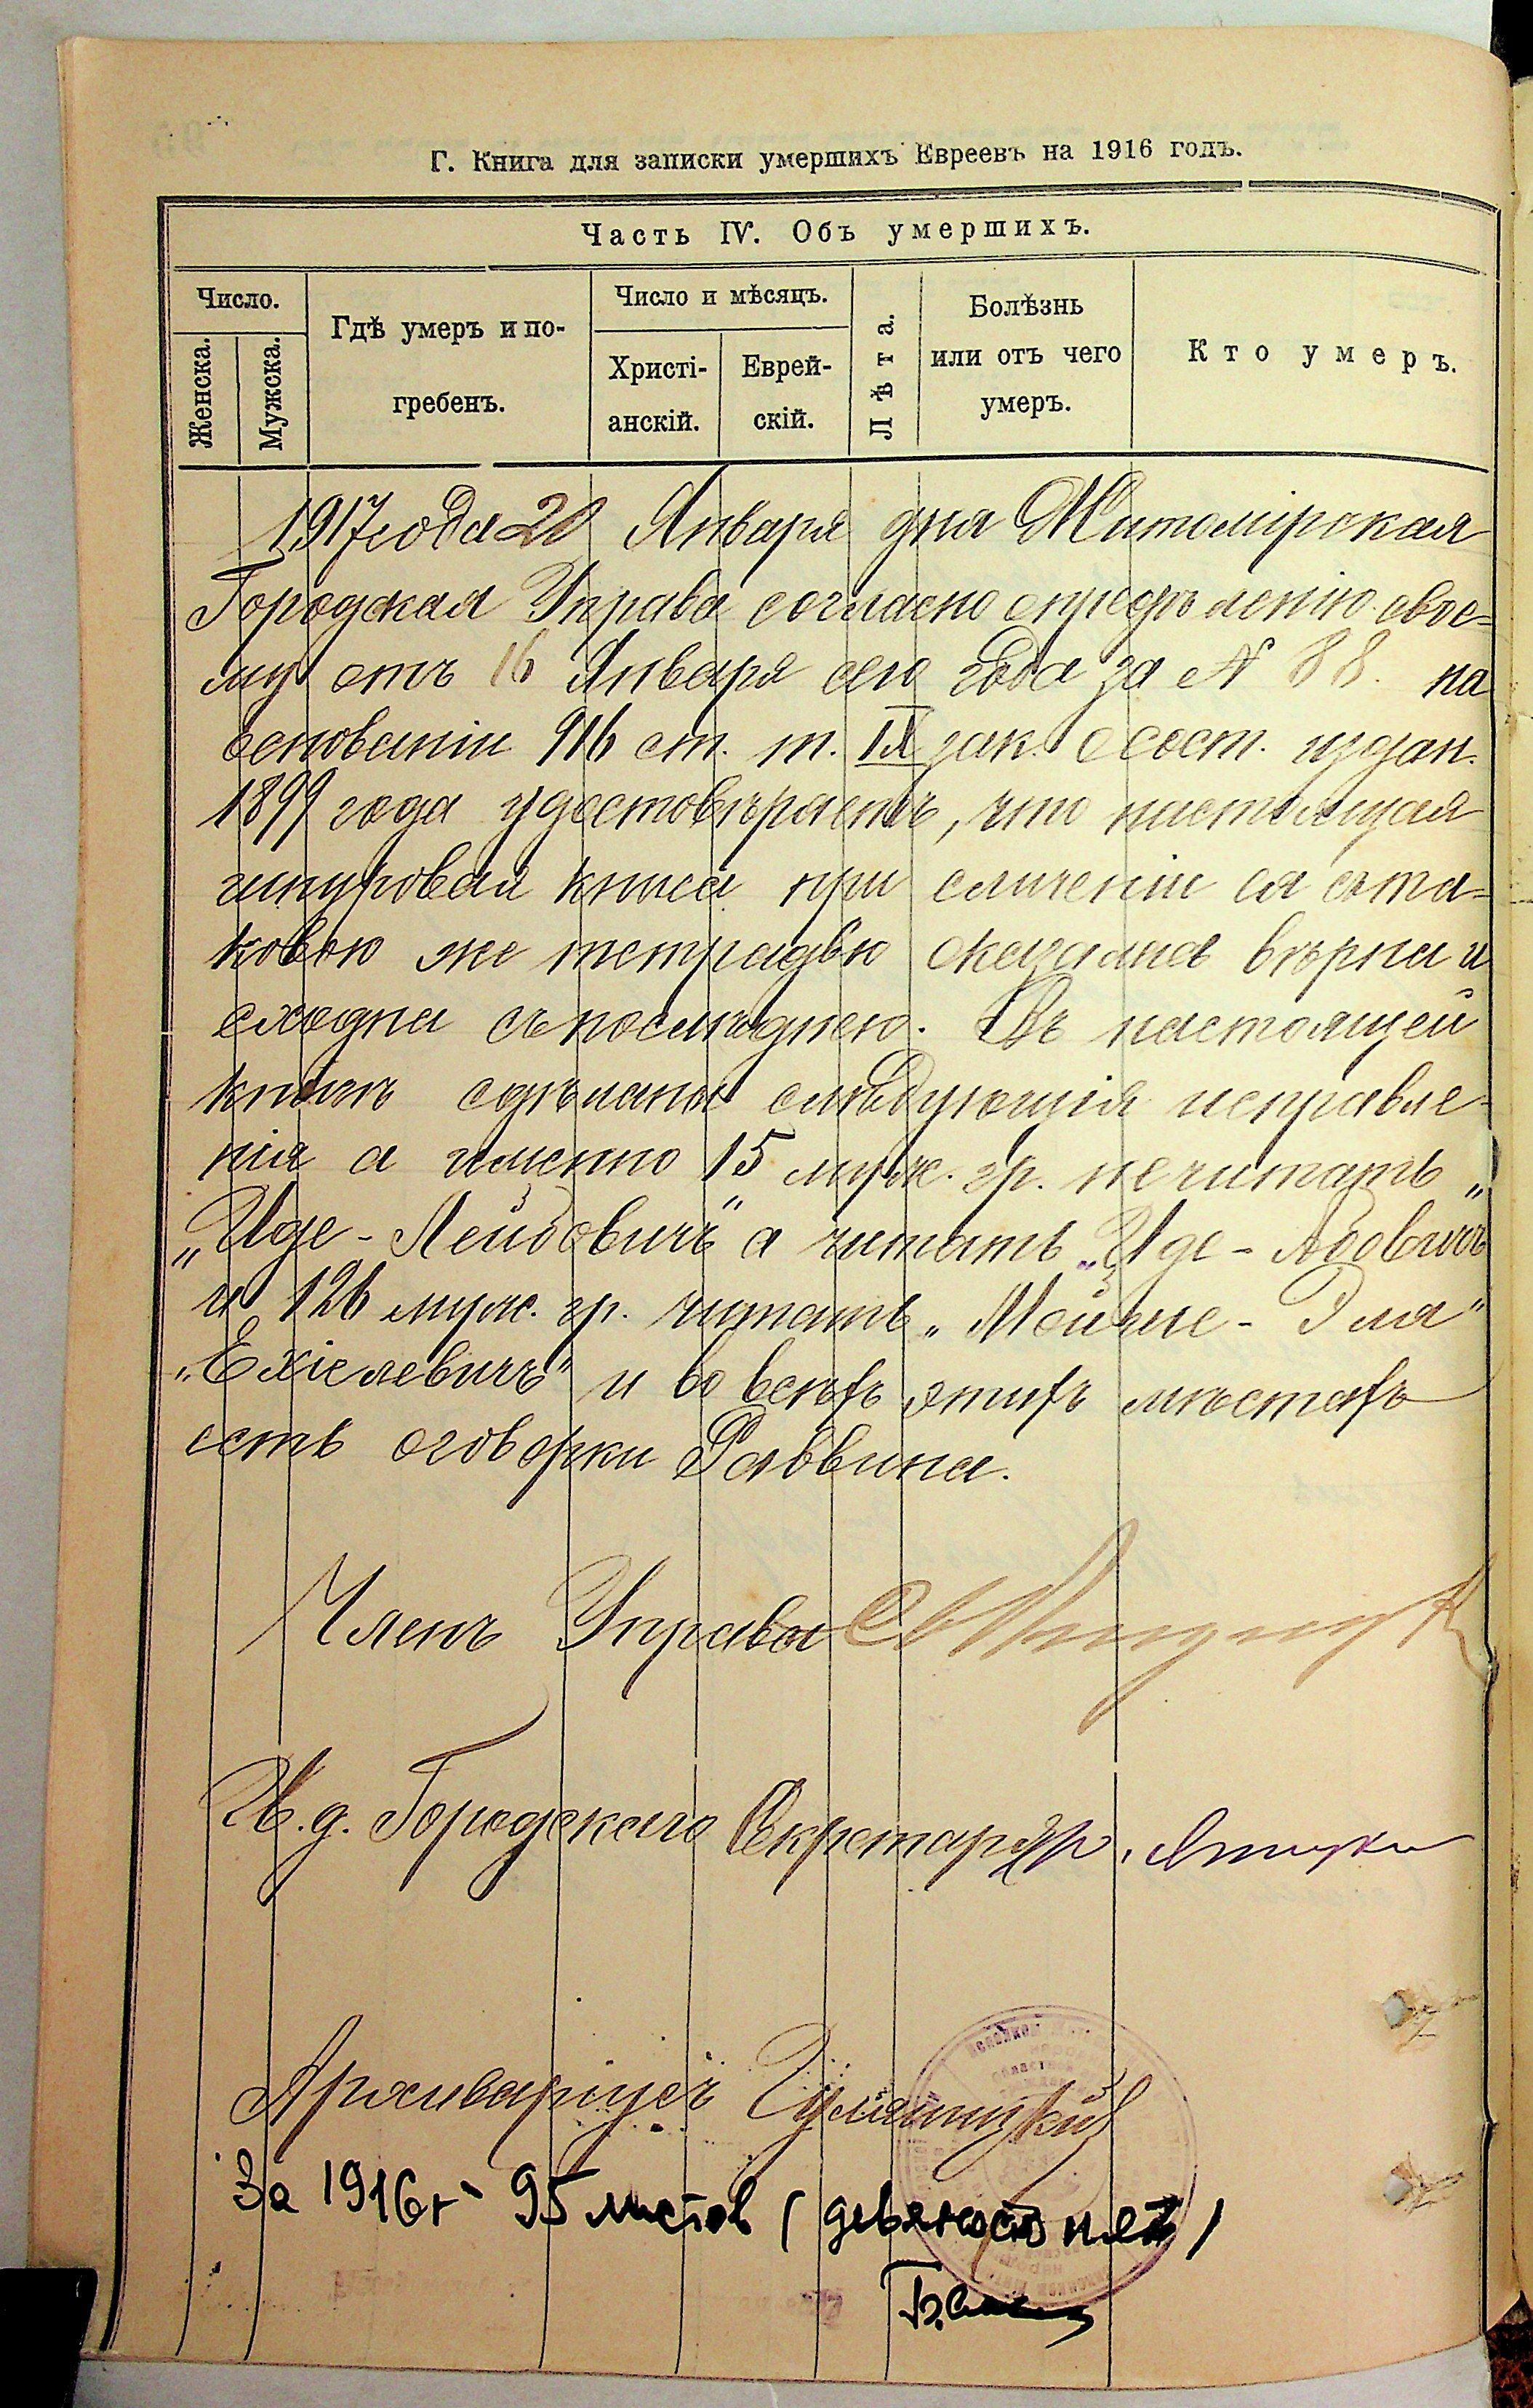 Г. Книга для записки умершихъ Евреевъ на 1916 годъ.
Часть IV. Объ умершихъ.
Число.
Женска.
Мужска.
Гдѣ умеръ и по-
гребенъ.
Число и мѣсяцъ.
Христі-
анскій.
Еврей-
скій.
Лѣта.
Болѣзнь
или отъ чего
умеръ.
Кто умеръ.
1917 года 20 Января дня Житомірская
Городская Управа согласно опредѣленію свое-
му отъ 16 Января сего года за № 88. на
основаніи 916 ст. т. IX зак. о сост. издан.
1899 года удостовѣряетъ, что настоящая
шнуровая книга при сличеніи ея съ та-
ковою же тетрадью оказалась вѣрна и
сходна съ послѣднею. Въ настоящей
книгѣ сдѣланы слѣдующія исправле-
нія а именно 15 муж. гр. не читать „
„Иде-Лейбовичъ" а читать „Иде-Абовичъ
и 126 муж. гр. читать „Мойше-Эля"
„Ехіелевичъ" и во всѣхъ этихъ мѣстахъ
есть оговорки Раввина.
Членъ Управы
И.д. Городскаго Секретаря
Архиваріусъ
За 1916 г - 95 листов (девяносто пять)